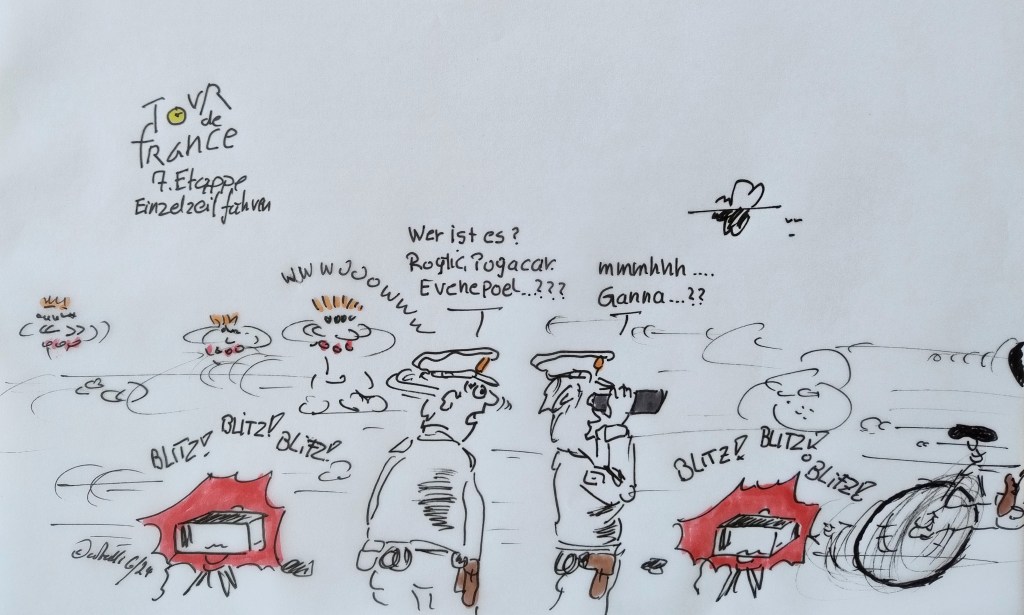 TOUR
de
france
7. Etappe
Einzelzeitfahren
WWWOOOWWW
Wer ist es?
Roglic, Pogacar
Evenepoel...???
mmmhhh....
Ganna...??
BLITZ!
BLITZ!
BLITZ!
BLITZ!
BLITZ!
BLITZ!
6/24